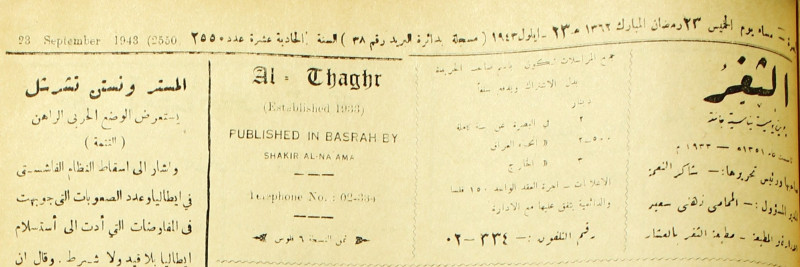 مساء يوم الخميس ٢٣ رمضان المبارك ١٣٦٢ هـ ٢٣ - ايلول ١٩٤٣ ( مسجلة بدائرة البريد رقم ٣٨ ) السنة الحادية عشرة عدد ٢٥٥٠
23 September 1943 (2550)
الثغر
يومية سياسية جامعة
١٣٥١ هـ - ١٩٣٣ م
ورئيس تحريرها :- شاكر النعمة
المسؤول :- المحامي زهدي سعيد
المطبعة - مطبعة الثغر بالعشار
جميع المراسلات تكون باسم صاحب الجريدة
بدل الاشتراك ويدفع سلفاً
دينار
٢ في البصرة عن سنة كاملة
٢-٥٠٠ « انحاء العراق
٣ « الخارج
الاعلانات - اجرة العقد الواحد ١٥٠ فلسا
والدائمية يتفق عليها مع الادارة
رقم التلفون :- ٣٣٤-٠٢
Al-Thaghr
(Established 1933)
PUBLISHED IN BASRAH BY
SHAKIR AL-NA AMA
Telephone No. : 02-334
ثمن النسخة ٦ فلوس
المستر ونستن تشرشل
يستعرض الوضع الحربي الراهن
( التتمة )
واشار الى اسقاط النظام الفاشستي
في ايطاليا وعدد الصعوبات التي جوبهت
في المفاوضات التي أدت الى أستسلام
ايطاليا بلا قيد ولا شرط . وقال ان